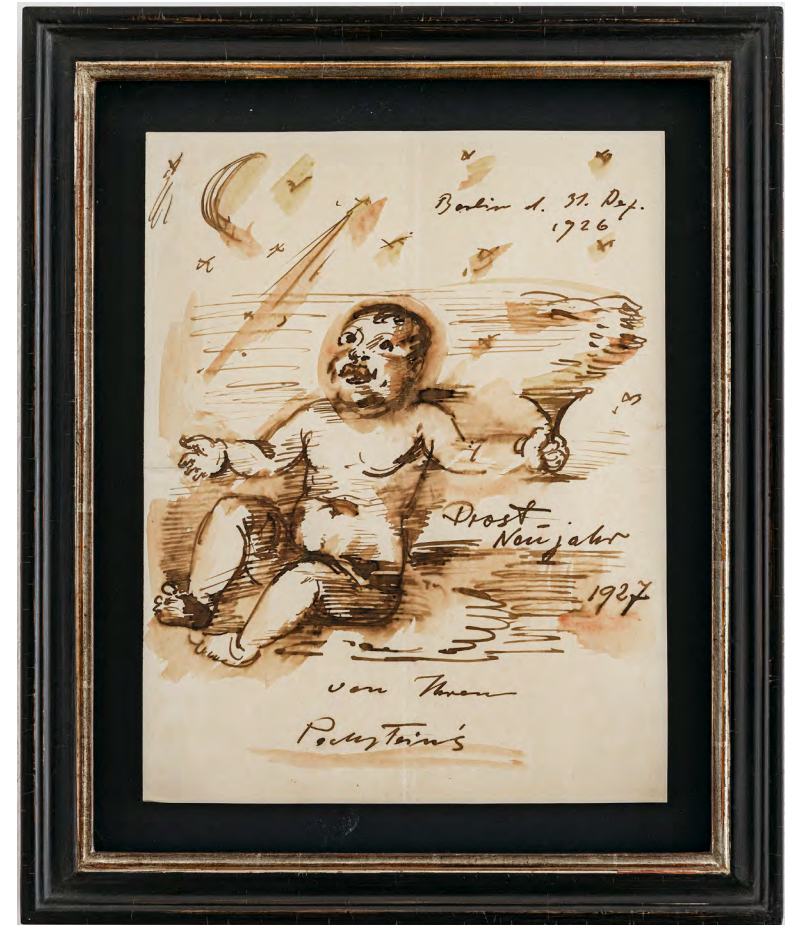 Berlin d. 31. Dez.
1926
Prost
Neujahr
1927
von Ihren
Pechstein's